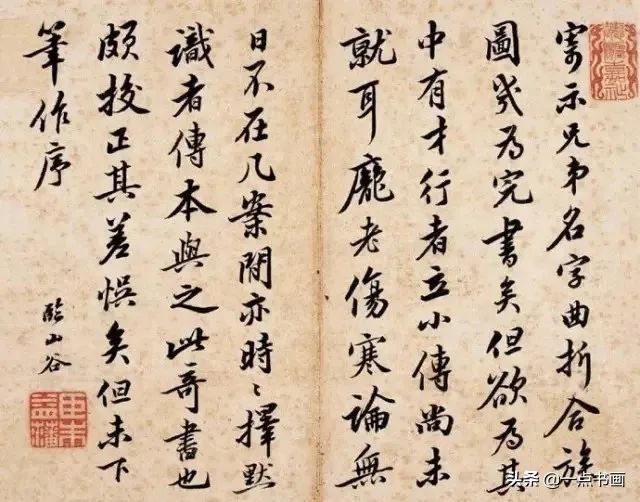 寄示兄弟名字曲折合族
圖幾為完書矣但欲為其
中有才行者立小傳尚未
就耳龐老傷寒論無
日不在几案間亦時〻擇默
識者傳本與之此奇書也
頗校正其差悮矣但未下
筆作序
臨山谷
头条 @一点书画